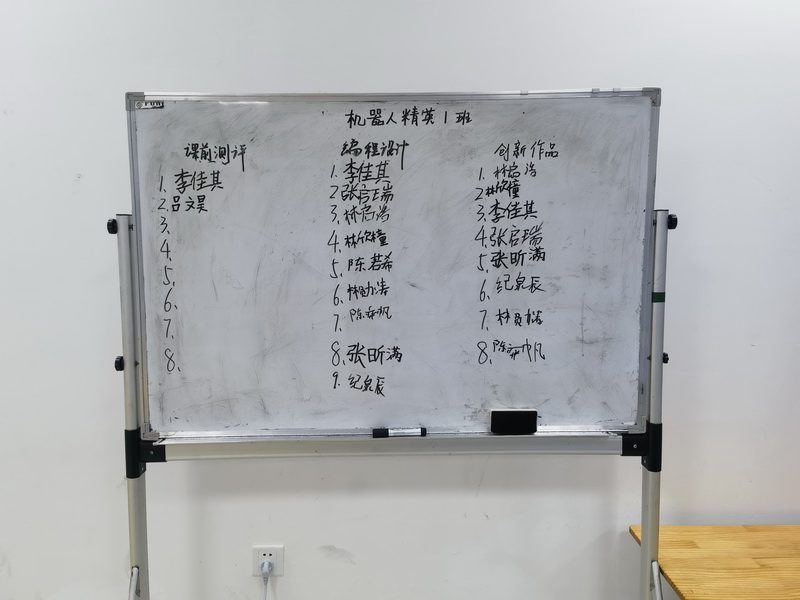 机器人精英1班
课前测评
1. 李佳其
2. 吕文昊
3.
4.
5.
6.
7.
8.
编程设计
1. 李佳其
2 张启瑞
3. 林启浩
4. 林欣橦
5. 陈若希
6.
7. 陈亦帆
8. 张昕满
9. 纪泉辰
创新作品
1. 林启浩
2 林欣橦
3. 李佳其
4. 张启瑞
5. 张昕满
6. 纪泉辰
7. 林
8. 陈亦帆